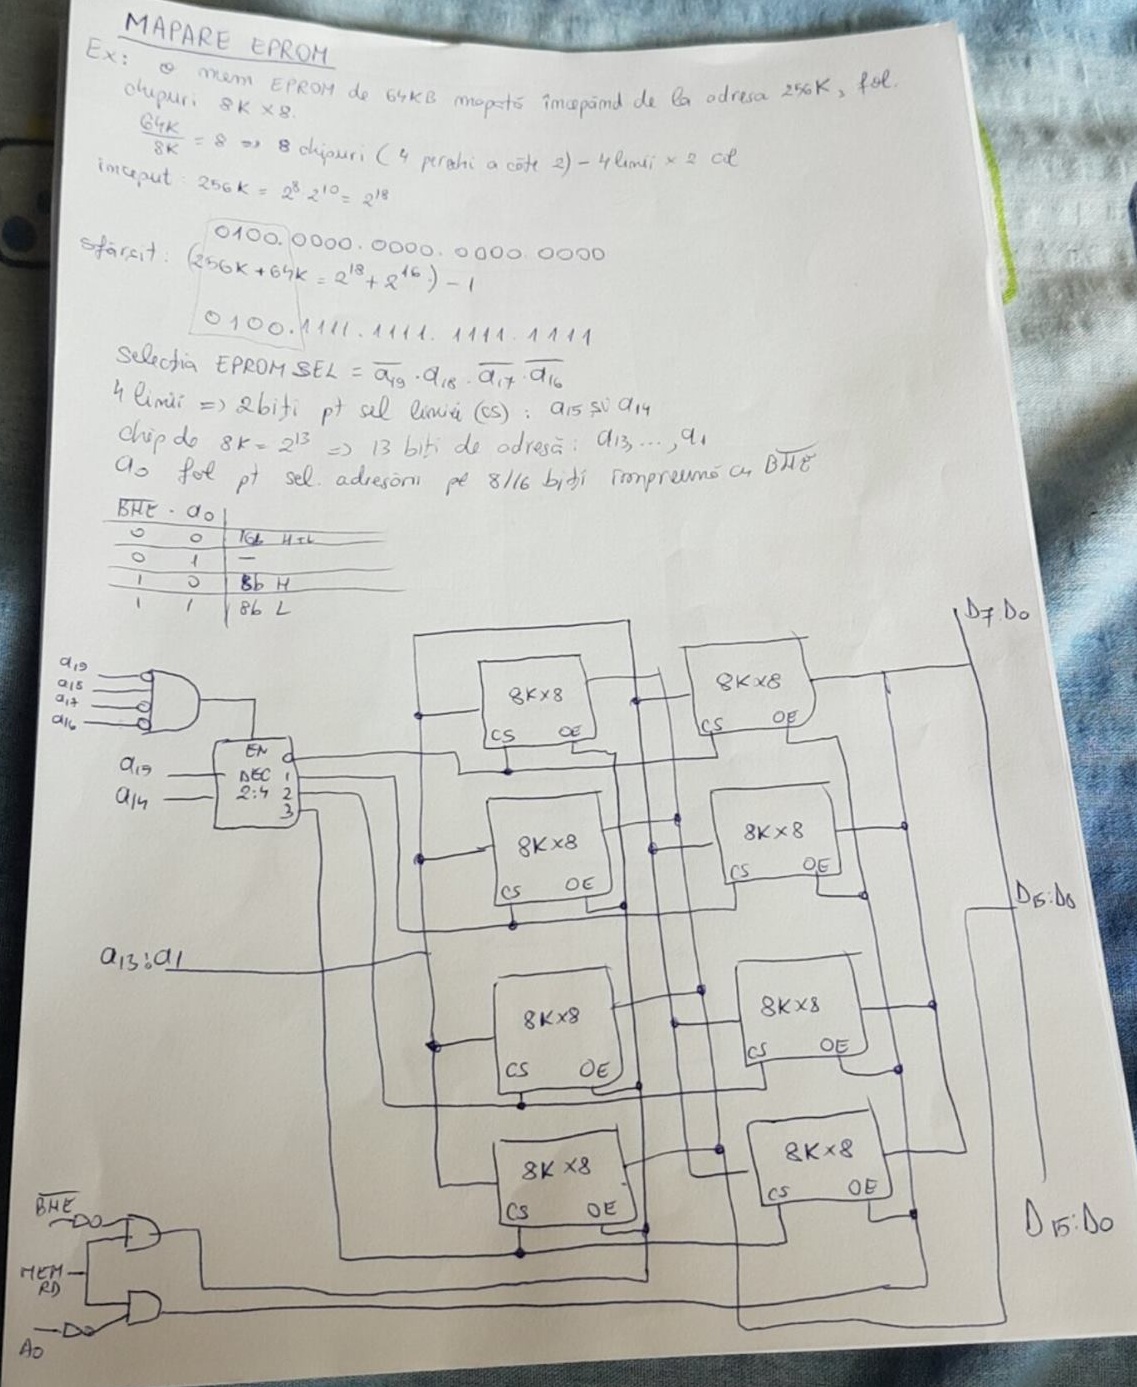 MAPARE EPROM
Ex: O mem EPROM de 64KB mapată începând de la adresa 256K, fol.
chipuri 8K x 8.
64K/8K = 8 => 8 chipuri (4 perechi a câte 2) - 4 linii x 2 col
început: 256K = 2^8 2^10 = 2^18
0100.0000.0000.0000.0000
sfârșit: (256K + 64K = 2^18 + 2^16) - 1
0100.1111.1111.1111.1111
Selecția EPROM SEL = a̅19 · a18 · a̅17 · a̅16
4 linii => 2 biți pt sel liniei (CS): a15 și a14
chip de 8K = 2^13 => 13 biți de adresă: a13, ..., a1
a0 fol pt sel. adresării pe 8/16 biți împreună cu B̅H̅E̅
B̅H̅E̅ · a0
0 0 16b H+L
0 1 —
1 0 8b H
1 1 8b L
D7:D0
a19
a18
a17
a16
8Kx8
CS OE
8Kx8
CS OE
EN
a15
a14
DEC
2:4
0
1
2
3
8Kx8
CS OE
8Kx8
CS OE
D15:D0
a13:a1
8Kx8
CS OE
8Kx8
CS OE
8Kx8
CS OE
8Kx8
CS OE
B̅H̅E̅
D15:D0
MEM
RD
A0